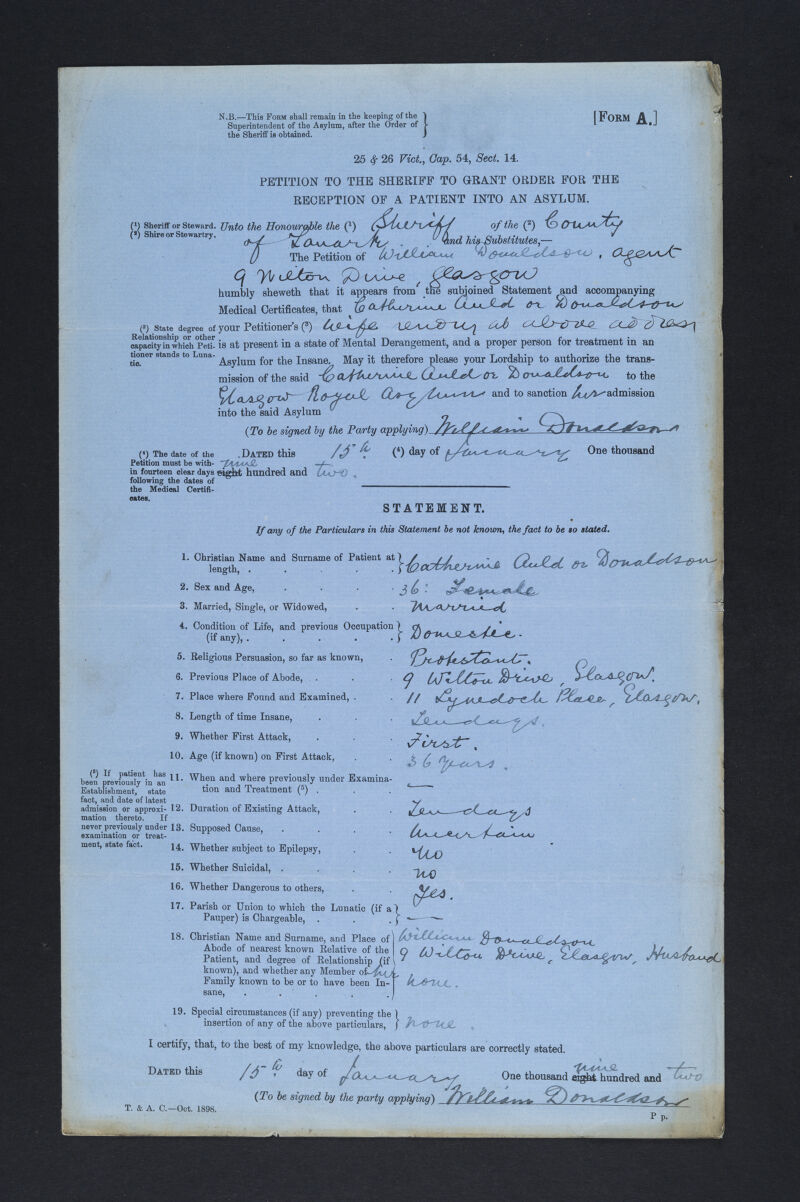 N.B.—This Form shall remain in the keeping of the
Superintendent of the Asylum, after the Order of
the Sheriff is obtained.
[Form A.]
25 & 26 Vict., Cap. 54, Sect. 14.
PETITION TO THE SHERIFF TO GRANT ORDER FOR THE
RECEPTION OF A PATIENT INTO AN ASYLUM.
(1) Sheriff or Steward.
(2) Shire or Stewartry.
Unto the Honourable the (1) Sheriff of the (2) County
of Lanark and his Substitutes,—
The Petition of William Donaldson, agent
9 Wilton Drive, Glasgow
humbly sheweth that it appears from the subjoined Statement and accompanying
Medical Certificates, that Catherine Auld or Donaldson
(3) State degree of
Relationship or other
capacity in which Peti-
tioner stands to Luna-
tic.
your Petitioner's (3) Wife residing at above address
is at present in a state of Mental Derangement, and a proper person for treatment in an
Asylum for the Insane. May it therefore please your Lordship to authorize the trans-
mission of the said Catherine Auld or Donaldson to the
Glasgow Royal Asylum and to sanction her admission
into the said Asylum
(To be signed by the Party applying) William Donaldson
(4) The date of the
Petition must be with-
in fourteen clear days
following the dates of
the Medical Certifi-
cates.
Dated this 15th (4) day of January One thousand
nine
eight hundred and two.
STATEMENT.
If any of the Particulars in this Statement be not known, the fact to be so stated.
1. Christian Name and Surname of Patient at
length, . Catherine Auld or Donaldson
2. Sex and Age, 36: Female
3. Married, Single, or Widowed, Married
4. Condition of Life, and previous Occupation
(if any), . Domestic.
5. Religious Persuasion, so far as known, Protestant.
6. Previous Place of Abode, 9 Wilton Drive, Glasgow.
7. Place where Found and Examined, 11 Lynedoch Place, Glasgow.
8. Length of time Insane, Ten days.
9. Whether First Attack, First.
10. Age (if known) on First Attack, 36 years.
(5) If patient has
been previously in an
Establishment, state
fact, and date of latest
admission or approxi-
mation thereto. If
never previously under
examination or treat-
ment, state fact.
11. When and where previously under Examina-
tion and Treatment (5) . —
12. Duration of Existing Attack, Ten days
13. Supposed Cause, Uncertain
14. Whether subject to Epilepsy, No
15. Whether Suicidal, no
16. Whether Dangerous to others, Yes.
17. Parish or Union to which the Lunatic (if a
Pauper) is Chargeable, —
18. Christian Name and Surname, and Place of
Abode of nearest known Relative of the
Patient, and degree of Relationship (if
known), and whether any Member of her
Family known to be or to have been In-
sane,
William Donaldson
9 Wilton Drive, Glasgow, Husband
none.
19. Special circumstances (if any) preventing the
insertion of any of the above particulars, none.
I certify, that, to the best of my knowledge, the above particulars are correctly stated.
nine
Dated this 15th day of January One thousand eight hundred and two
(To be signed by the party applying) William Donaldson
T. & A. C.—Oct. 1898.
P p.